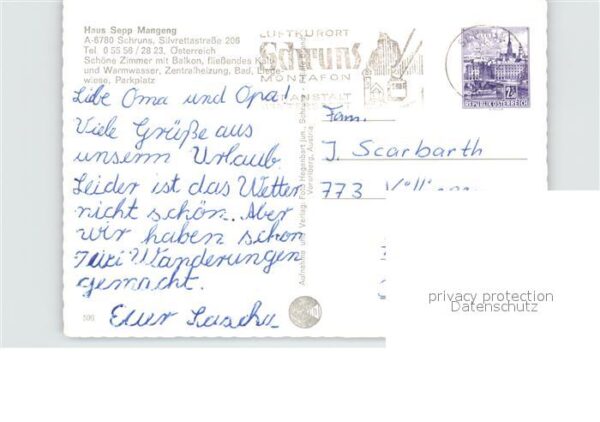 Haus Sepp Mangeng
A-6780 Schruns, Silvrettastraße 206
Tel. 0 55 56 / 28 23, Österreich
Schöne Zimmer mit Balkon, fließendes Kalt-
und Warmwasser, Zentralheizung, Bad, Liege-
wiese, Parkplatz
LUFTKURORT
Schruns
MONTAFON
ANSTALT
2S
REPUBLIK ÖSTERREICH
Liebe Oma und Opa!
Viele Grüße aus
unserm Urlaub
Leider ist das Wetter
nicht schön. Aber
wir haben schon
zwei Wanderungen
gemacht.
Euer Sascha
596
Aufnahme und Verlag: Foto Hegenbart jun., Schruns
Vorarlberg, Austria
Fam.
J. Scarbarth
773
privacy protection
Datenschutz